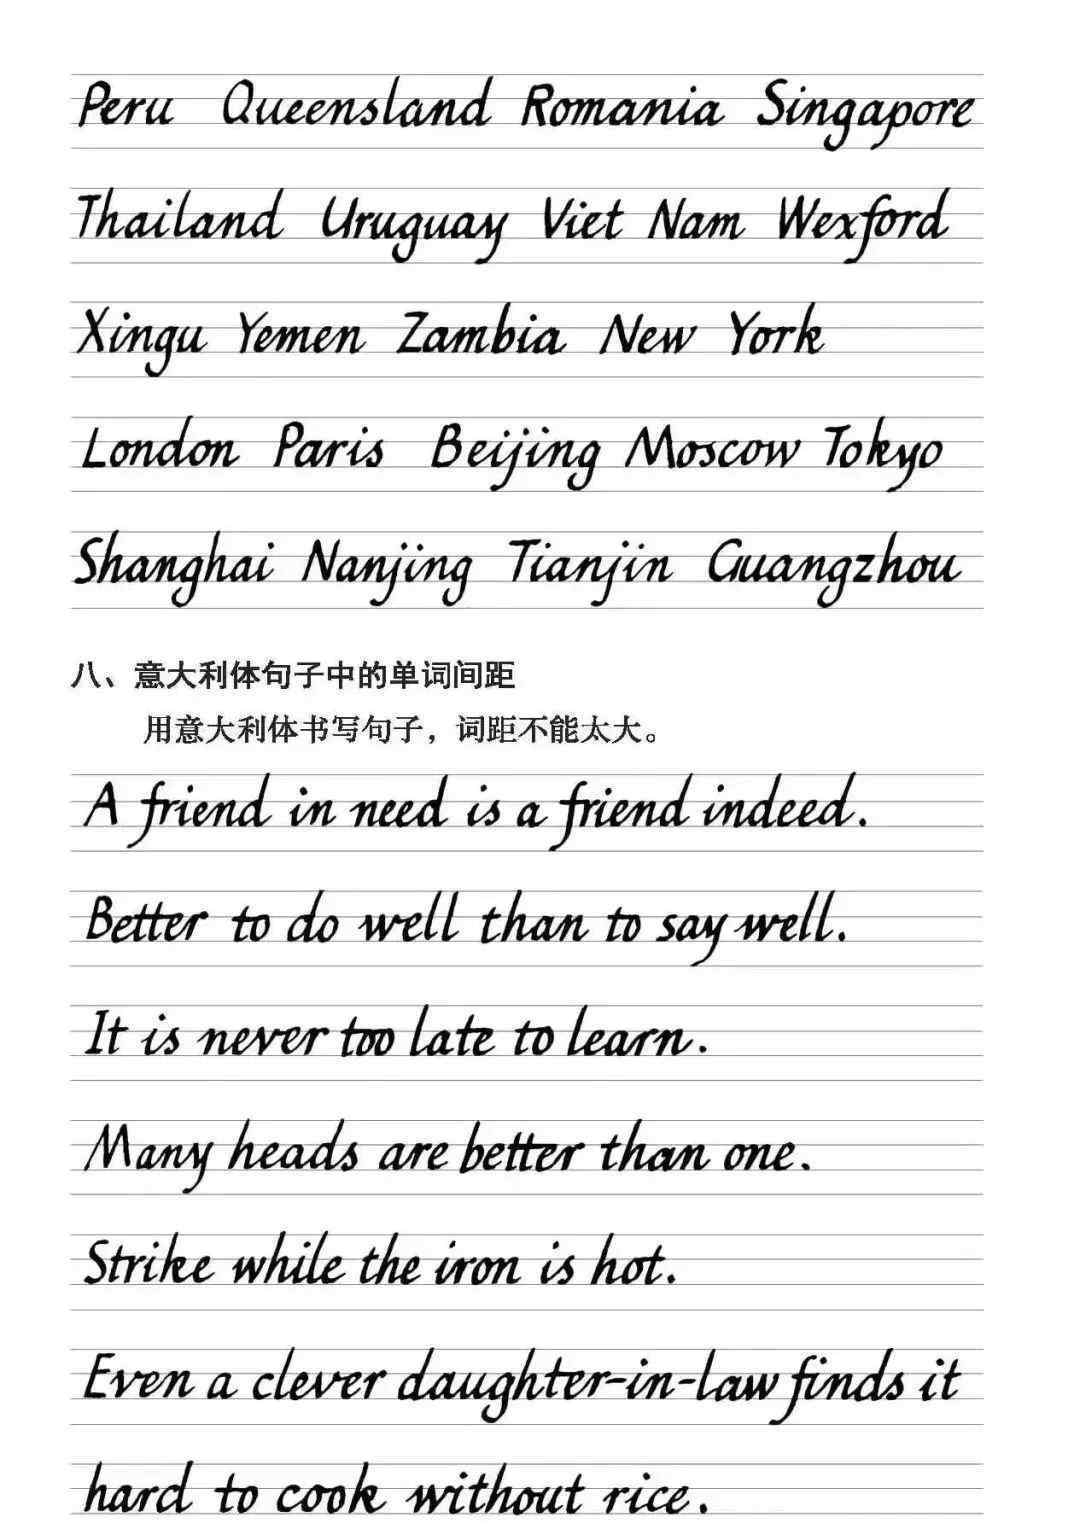 Peru Queensland Romania Singapore
Thailand Uruguay Viet Nam Wexford
Xingu Yemen Zambia New York
London Paris Beijing Moscow Tokyo
Shanghai Nanjing Tianjin Guangzhou
八、意大利体句子中的单词间距
用意大利体书写句子，词距不能太大。
A friend in need is a friend indeed.
Better to do well than to say well.
It is never too late to learn.
Many heads are better than one.
Strike while the iron is hot.
Even a clever daughter-in-law finds it
hard to cook without rice.